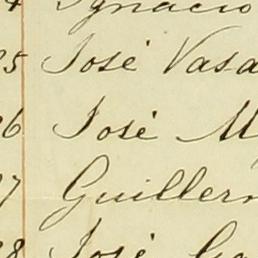 4 Ignacio
25 José Vasa
26 José M
27 Guillerm
28 José Ga